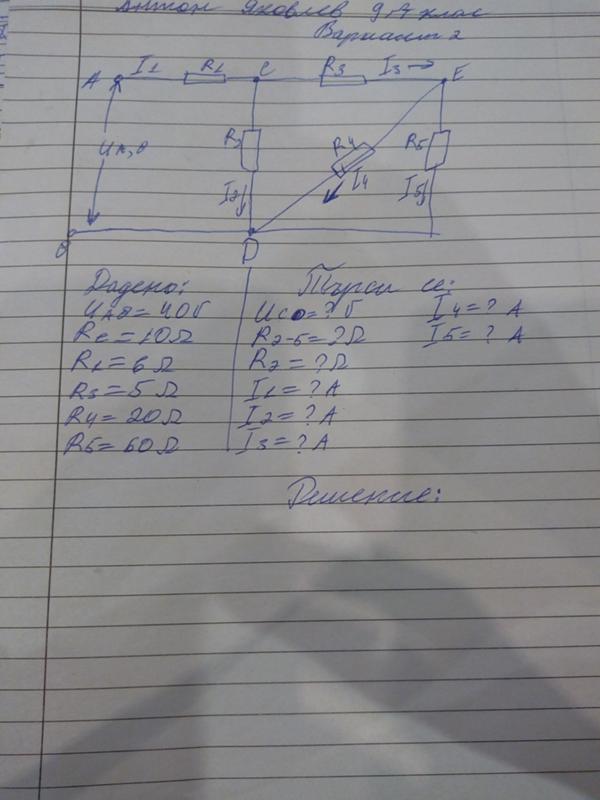 Антон Яковлев 9А клас
Вариант 2
A I1 R1 C R3 I3 E
UA,B R2 R4 R5
I2 I4 I5
B D
Дадено:
UAB=40В
Re=10Ω
R1=6Ω
R3=5Ω
R4=20Ω
R5=60Ω
Търси се:
UCD=?В
R2-5=?Ω
R2=?Ω
I1=?A
I2=?A
I3=?A
I4=? A
I5=? A
Решение: